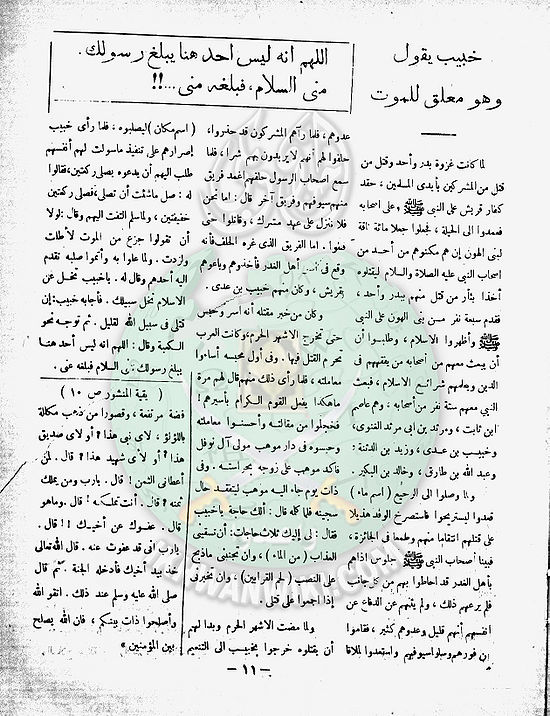 خبيب يقول
وهو معلق للموت
اللهم انه ليس احد هنا يبلغ رسولك
منى السلام، فبلغه منى...!!
لما كانت غزوة بدر وأحد وقتل من
قتل من المشركين بأيدى المسلمين، حقد
كفار قريش على النبي ﷺ وعلى اصحابه
فعمدوا الى الحيلة، فجعلوا جعلا مائة ناقة
لبنى الهون إن هم مكنوهم من أحد من
اصحاب النبي عليه الصلاة والسلام ليقتلوه
أخذا بثأر من قتل منهم ببدر وأحد،
فقدم سبعة نفر من بنى الهون على النبي
ﷺ وأظهروا الاسلام، وطلبوا أن
يبعث معهم من أصحابه من يفقههم فى
الدين ويعلمهم شرائع الاسلام، فبعث
النبي معهم ستة نفر من أصحابه، وهم عاصم
ابن ثابت، ومرثد بن ابى مرثد الغنوى،
وخبيب بن عدى، وزيد بن الدثنة:
وعبد الله بن طارق، وخالد بن البكير.
ولما وصلوا الى الرجيع (اسم ماء)
قعدوا ليستريحوا فاستصرخ الوفد هذيلا
على قتلهم انتقاما منهم وطمعا فى الجائزة،
فبينا أصحاب النبي ﷺ جلوس اذاهم
بأهل الغدر قد احاطوا بهم من كل جانب
فلم يرعهم ذلك، ولم يثنهم عن الدفاع عن
انفسهم أنهم قليل وعدوهم كثير، فقاموا
من فورهم وسلوا سيوفهم واستعدوا لملاقاة
عدوهم، فلما رآهم المشركون قد حفزوا،
حلفوا لهم أنهم لا يريدون بهم شرا، فلما
سمع اصحاب الرسول حلفهم أغمد فريق
منهم سيوفهم وفريق آخر قال: اما نحن
فلا ننزل على عهد مشرك، وقاتلوا حتى
فنوا. اما الفريق الذى غره الحلف فأنه
وقع فى أسر أهل الغدر فأخذوهم وباعوهم
بقريش، وكان منهم خبيب بن عدى.
وكان من خبر مقتله أنه اسر وحبس
حتى تخرج الاشهر الحرم، وكانت العرب
تحرم القتل فيها. وفى أول محبسه أساءوا
معاملته، فلما رأى ذلك منهم قال لهم مرة
ما هكذا يفعل القوم الكرام بأسيرهم!
فخجلوا من مقالته وأحسنوا معاملته
وحبسوه فى دار موهب مولى آل نوفل
فأكد موهب على زوجه بحراسته. وفى
ذات يوم جاء اليه موهب ليتفقد حال
سجينه فلما كله قال: ألك حاجة ياخبيب
فقال: لى اليك ثلاث حاجات: أن تسقينى
العذاب (من الماء)، وان تجنبنى ماذبح
على النصب (لحم القرابين)، وان تخبرنى
إذا اجمعوا على قتلى.
ولما مضت الاشهر الحرم وبدا لهم
أن يقتلوه خرجوا بخبيب الى التنعيم
(اسم مكان) ليصلبوه، فلما رأى خبيب
إصرارهم على تنفيذ ماسولت لهم أنفسهم
طلب اليهم أن يدعوه يصلى ركعتين، فقالوا
له: صل ماشئت أن تصلى، فصلى ركعتين
خفيفتين، ولما سلم التفت اليهم وقال: لولا
أن تقولوا جزع من الموت لأطلت
وازددت. ولما علوا به وأتموا صلبه تقدم
اليه أحدهم وقال له. ياخبيب تخل عن
الاسلام نخل سبيلك. فأجابه خبيب: إن
قتلى فى سبيل الله لقليل. ثم توجه نحو
الكعبة وقال: اللهم انه ليس أحد هنا
يبلغ رسولك منى السلام فبلغه عنى.
(بقية المنشور ص ١٠)
فضة مرتفعة، وقصورا من ذهب مكللة
باللؤلؤ، لاى نبى هذا؟ أو لاى صديق
هذا؟ أو لاى شهيد هذا؟ قال. لمن
أعطانى الثمن! قال. يارب ومن يملك
ثمنه؟ قال. أنت تملكه! قال. وماهو
قال. عفوك عن أخيك!! قال.
يارب انى قد عفوت عنه. قال الله تعالى
خذ بيد أخيك فأدخله الجنة. ثم قال
صلى الله عليه وسلم عند ذلك. اتقوا الله
وأصلحوا ذات بينكم، فان الله يصلح
بين المؤمنين»
— ١١ —